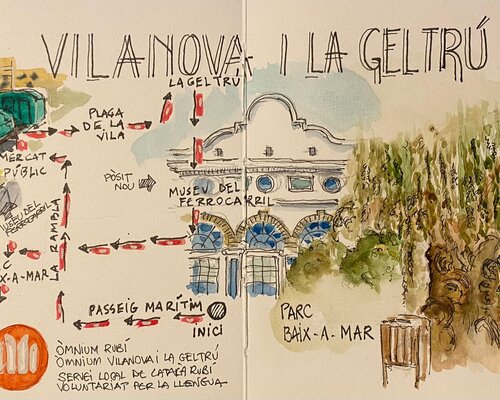 VILANOVA I LA GELTRÚ
LA GELTRÚ
PLAÇA
DE LA
VILA
MERCAT
PÚBLIC
PÒSIT
NOU
MUSEU DEL
FERROCARRIL
LA RAMBLA
C
X-A-MAR
PASSEIG MARÍTIM
INICI
PARC
BAIX-A-MAR
ÒMNIUM RUBÍ
ÒMNIUM VILANOVA I LA GELTRÚ
SERVEI LOCAL DE CATALÀ RUBÍ
VOLUNTARIAT PER LA LLENGUA